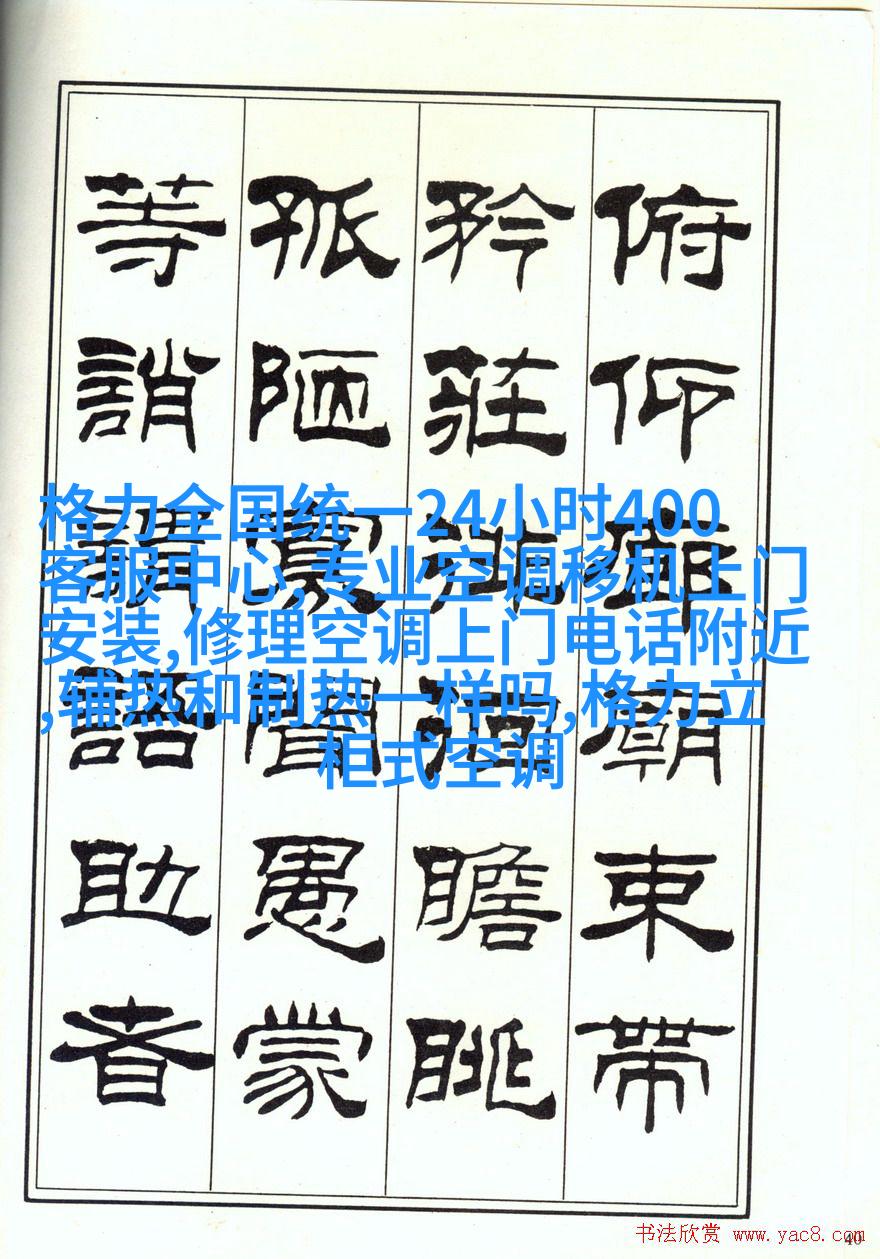 俯仰廊廟束帶
矜莊徘徊瞻眺
孤陋寡聞愚蒙
等誚謂語助者
格力全国统一24小时400
客服中心,专业空调移机上门
安装,修理空调上门电话附近
,辅热和制热一样吗,格力立
柜式空调
书法欣赏 www.yac8.com
40